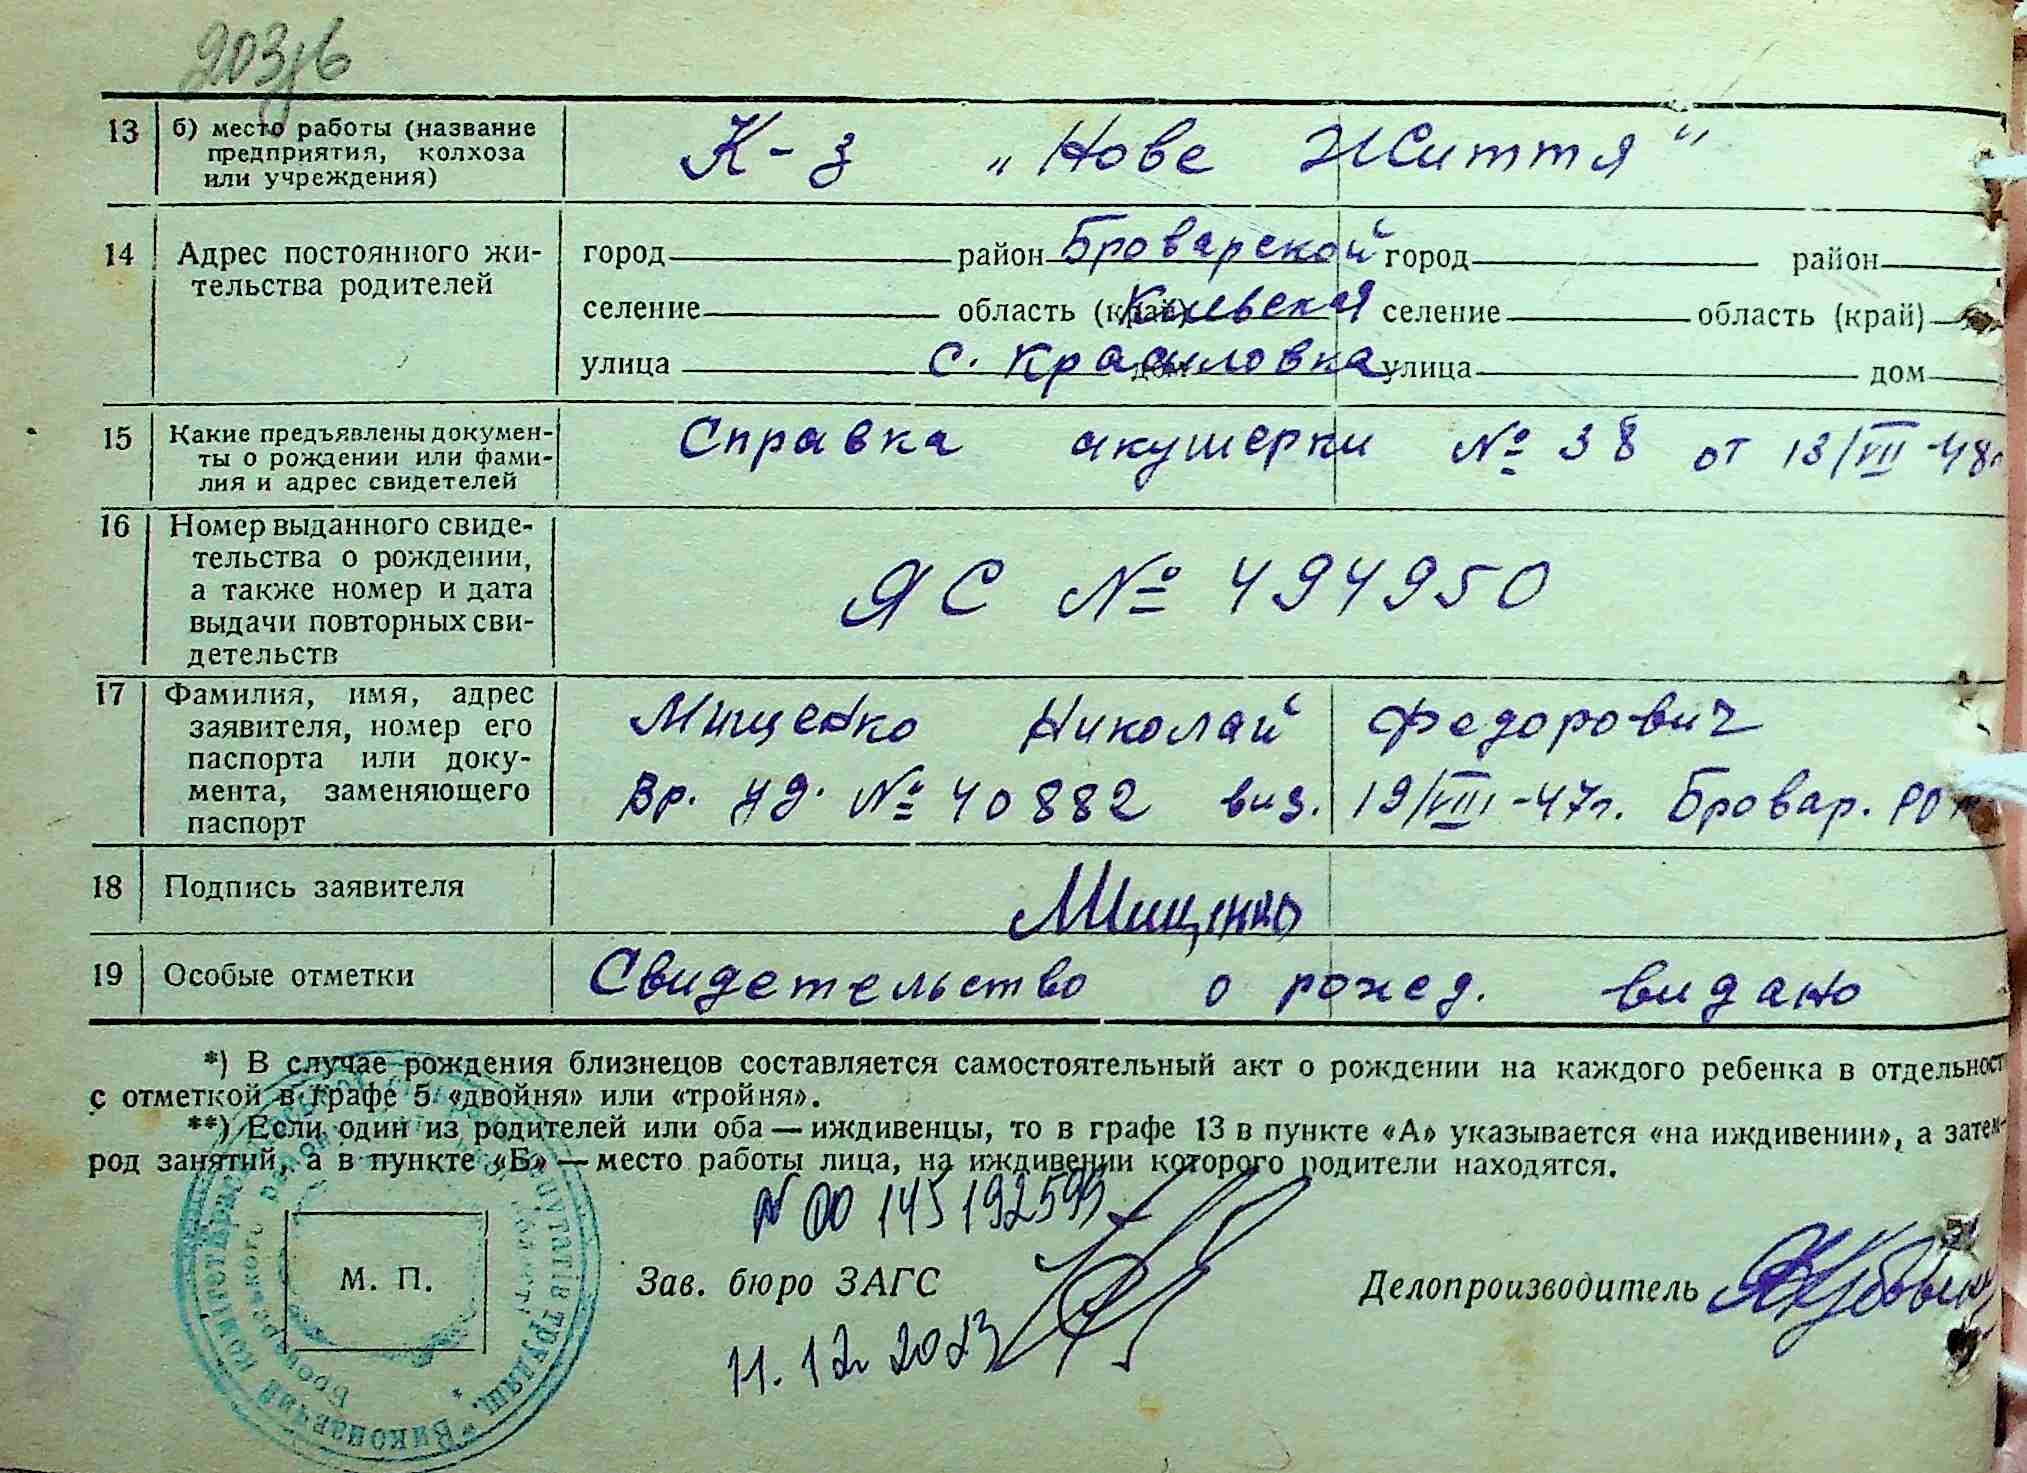 203/в
13 б) место работы (название К-з „Нове Життя"
предприятия, колхоза
или учреждения)
14 Адрес постоянного жи- город район Броварской город район
тельства родителей селение область (край) Киевская селение область (край)
улица с. Красиловка дом улица дом
15 Какие предъявлены докумен- Справка акушерки № 38 от 13/VII-48г
ты о рождении или фами-
лия и адрес свидетелей
16 Номер выданного свиде-
тельства о рождении,
а также номер и дата ЯС № 494950
выдачи повторных сви-
детельств
17 Фамилия, имя, адрес Мищенко Николай Федорович
заявителя, номер его
паспорта или доку-
мента, заменяющего Вр. уд. № 40882 виз. 19/VIII-47г. Бровар. РО
паспорт
18 Подпись заявителя Мищенко
19 Особые отметки Свидетельство о рожед. видано
*) В случае рождения близнецов составляется самостоятельный акт о рождении на каждого ребенка в отдельност
с отметкой в графе 5 «двойня» или «тройня».
**) Если один из родителей или оба — иждивенцы, то в графе 13 в пункте «А» указывается «на иждивении», а затем-
род занятий, а в пункте «Б» — место работы лица, на иждивении которого родители находятся.
N 00145192599
М. П. Зав. бюро ЗАГС Делопроизводитель
11.12.2023
Виконавчий комітет Красилівської депутатів трудящ.
Броварського району області